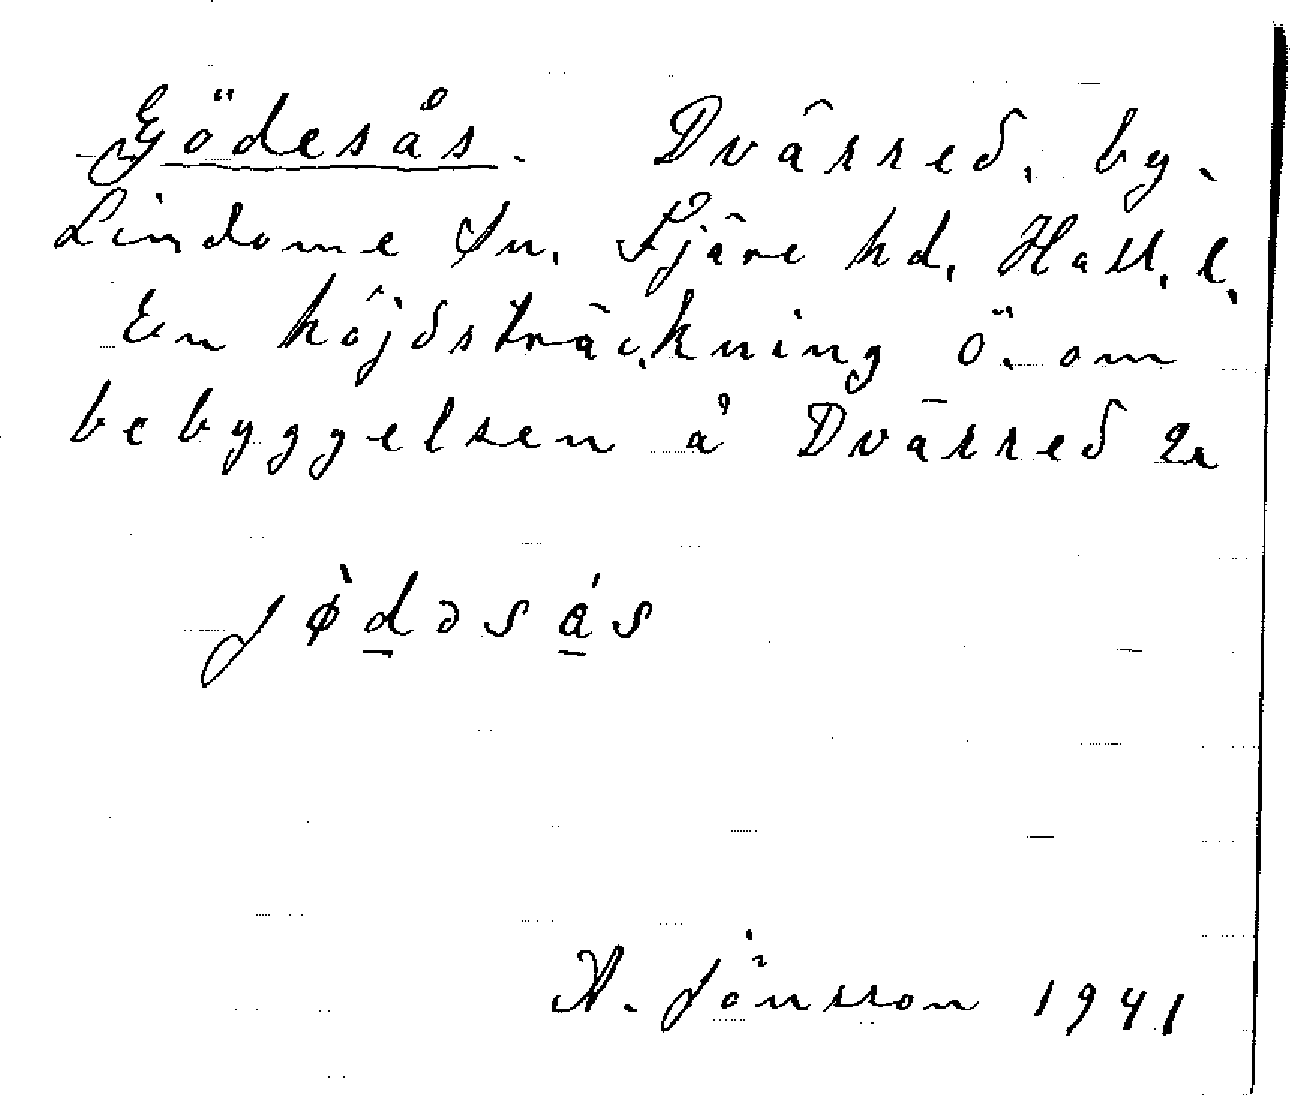 Gödesås. Dvärred, by.
Lindome sn, Fjäre hd, Hall. l.
En höjdsträckning ö. om
bebyggelsen å Dvärred 2a
jø̀dəsás
A. Jönsson 1941